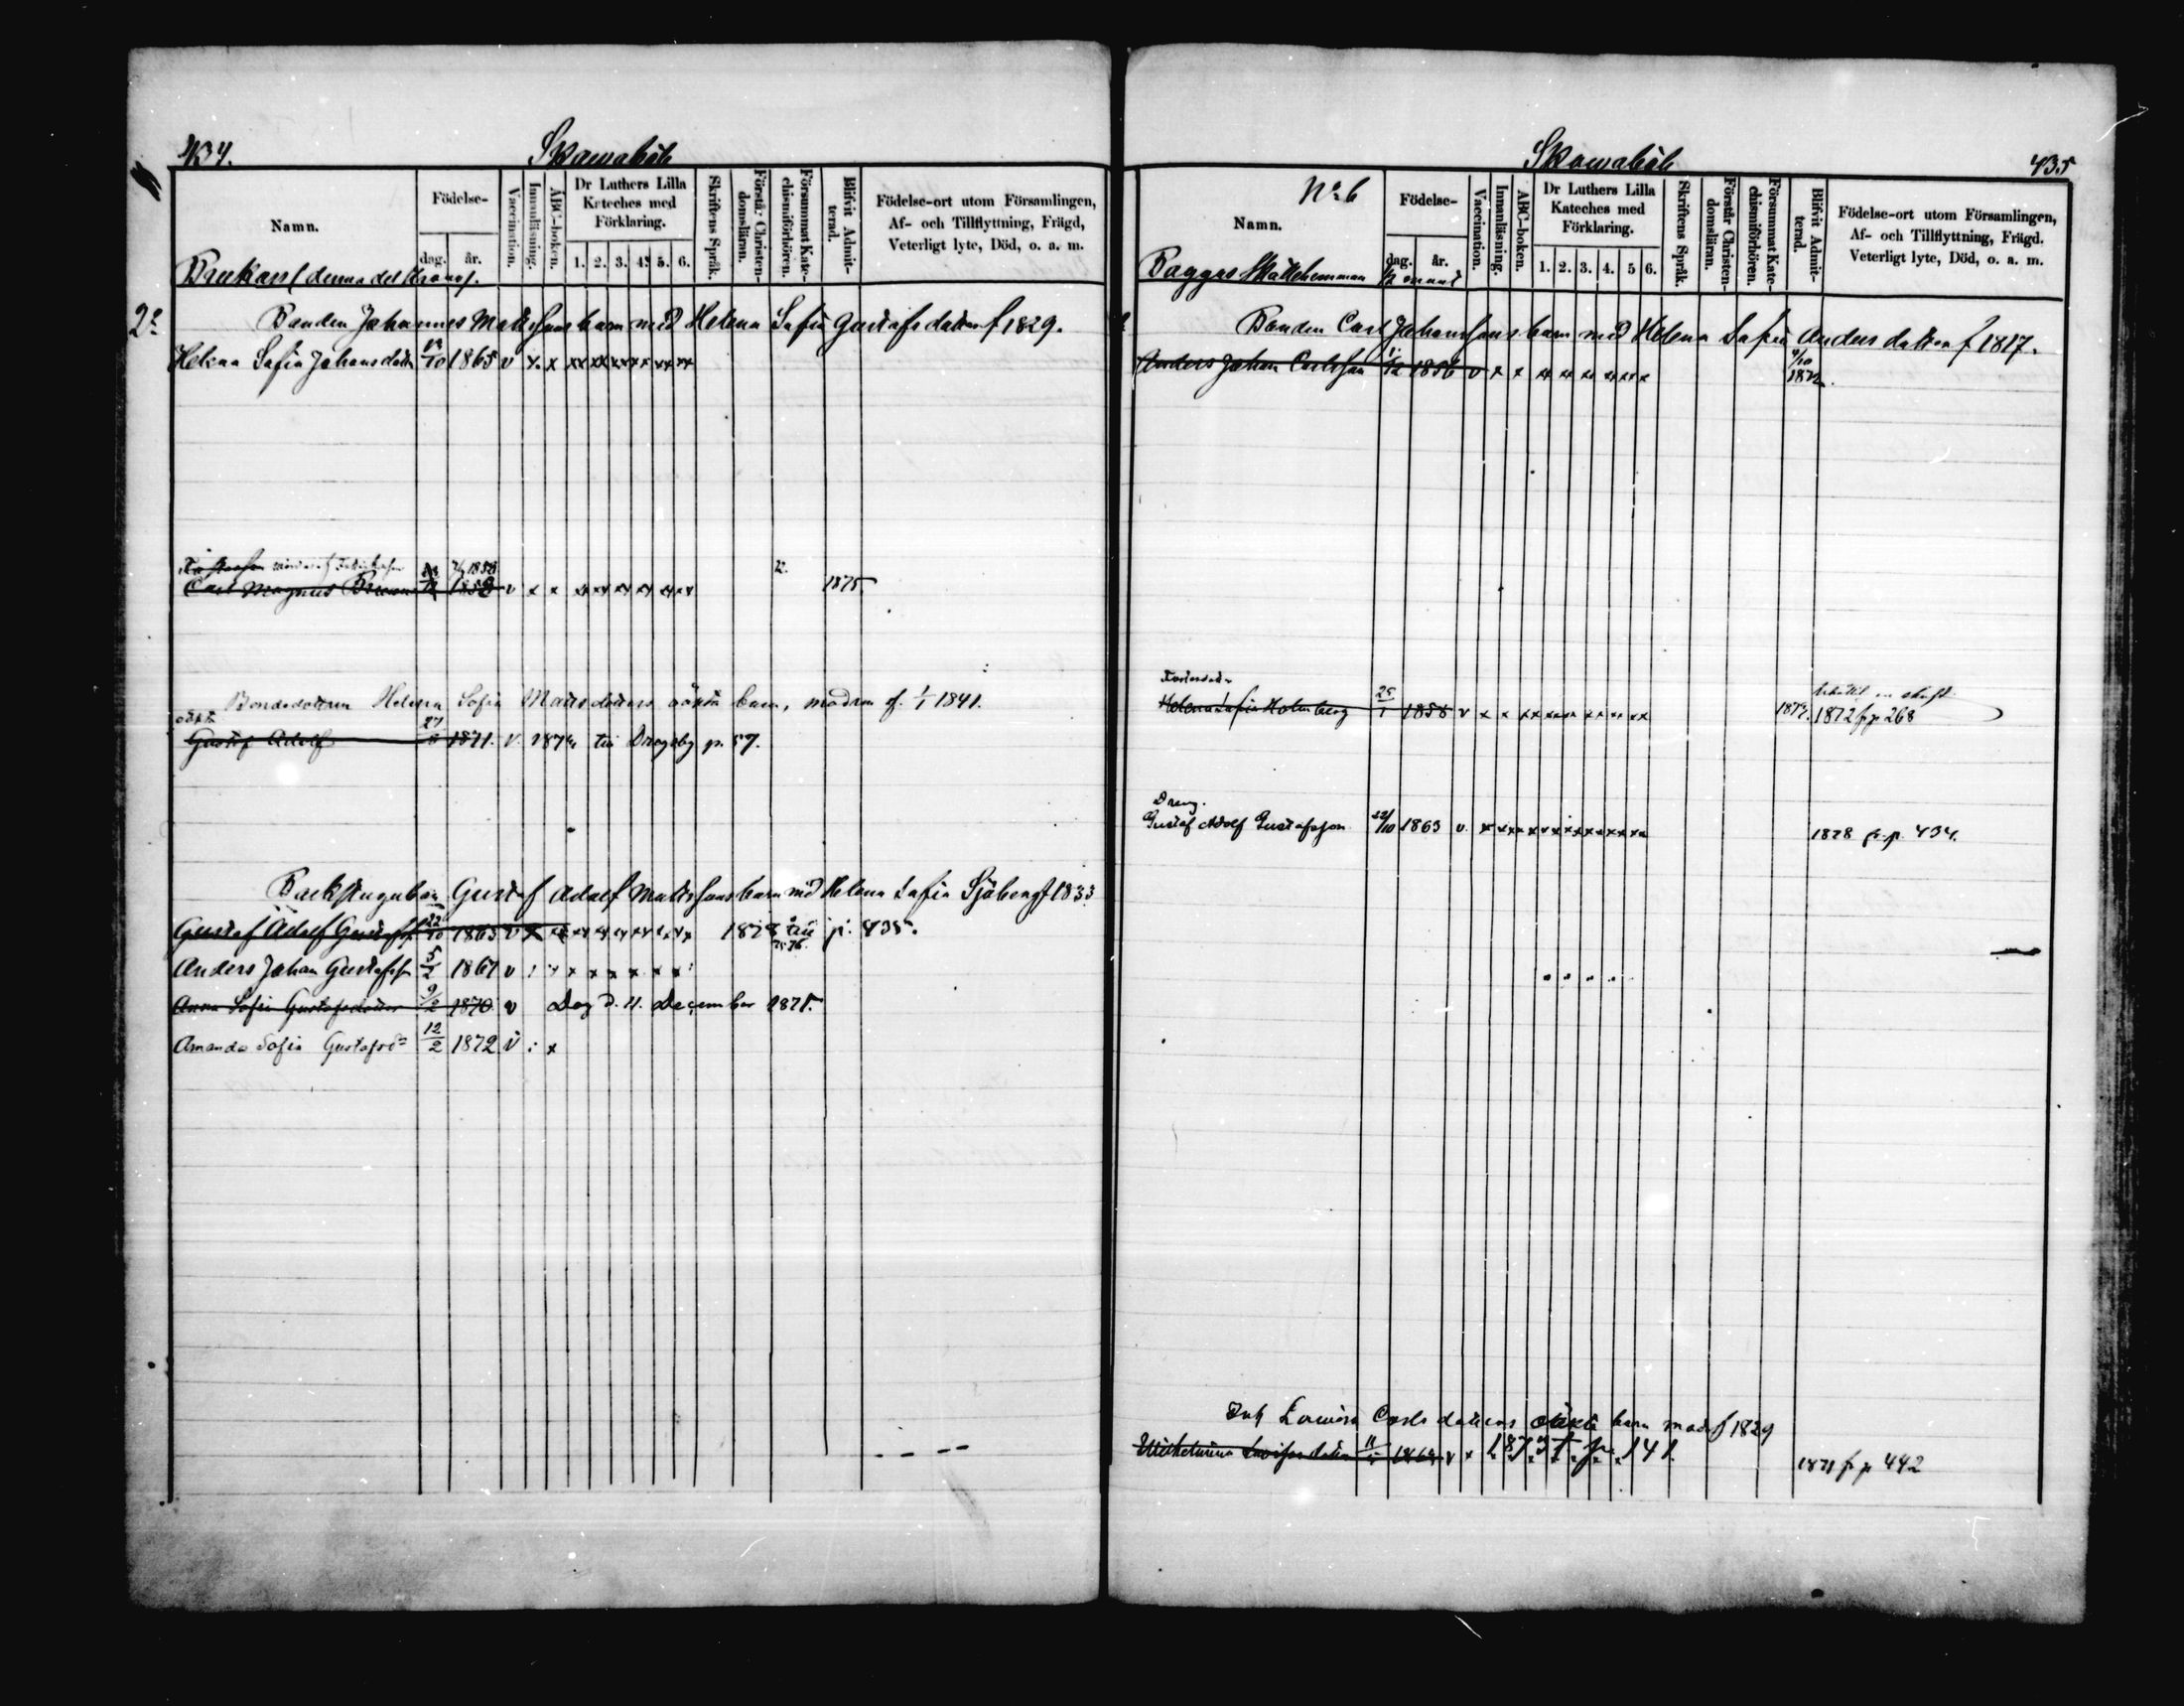 434.
Skamaböle
Namn.
Födelse-
dag.
år.
Vaccination.
Innanläsning.
ABC-boken.
Dr Luthers Lilla
Kateches med
Förklaring.
1. 2. 3. 4. 5. 6.
Skriftens Språk.
Förstår Christen-
domsläran.
Försummat Kate-
chismiförhören.
Blifvit Admit-
terad.
Födelse-ort utom Församlingen,
Af- och Tillflyttning, Frägd,
Veterligt lyte, Död, o. a. m.
2:
Bonden Johannes Mattssons barn med Helena Sofia Gustafsdotter f 1829.
Helena Sofia Johansdotter 13/10 1865 v x x xx xx xx xx xx xx
2/7 1858
Carl Magnus 1858 v x x xx xx xx xx xx xx 1875
Bondedottren Helena Sofia Mattsdotters oäkta barn, modren f. 1/1 1841.
oäkta
Gustaf Adolf 1871. v. 1874 till Dragsby p. 57.
Gustaf Adolf Mattssons barn med Helena Sofia Sjöberg f 1833
Gustaf Adolf Gustafss 22/10 1863 v x xx xx xx xx xx xx xx 1878 till p. 435.
75. 76.
Anders Johan Gustafss 5/2 1867 v : x x x x x x x
Anna Sofia Gustafsdotter 9/2 1870 v Dog d. 11. December 1875.
Amanda Sofia Gustafsd 12/2 1872 v : x
Skamaböle
435
N:o 6
Namn.
Födelse-
dag.
år.
Vaccination.
Innanläsning.
ABC-boken.
Dr Luthers Lilla
Kateches med
Förklaring.
1. 2. 3. 4. 5 6.
Skriftens Språk.
Förstår Christen-
domsläran.
Försummat Kate-
chismiförhören.
Blifvit Admit-
terad.
Födelse-ort utom Församlingen,
Af- och Tillflyttning, Frägd.
Veterligt lyte, Död, o. a. m.
Bagges Skattehemman 1/2 mant
Bonden Carl Johanssons barn med Helena Sofia Andersdotter f 1817.
Anders Johan Carlsson 1856 v x x xx xx xx xx xx x 1872
Helena Sofia Holmberg 25/1 1858 v x x xx xx xx xx xx xx 1874. 1872 fr p 268
Dreng.
Gustaf Adolf Gustafsson 22/10 1863 v. x xx xx xx xx xx xx xx 1878 fr. p. 434.
Inh Lovisa Carls dotters oäkta barn mod f 1829
Wilhelmina Lovisa dotter 11/5 v x 1873 t. p. 141. 1871 fr p 442